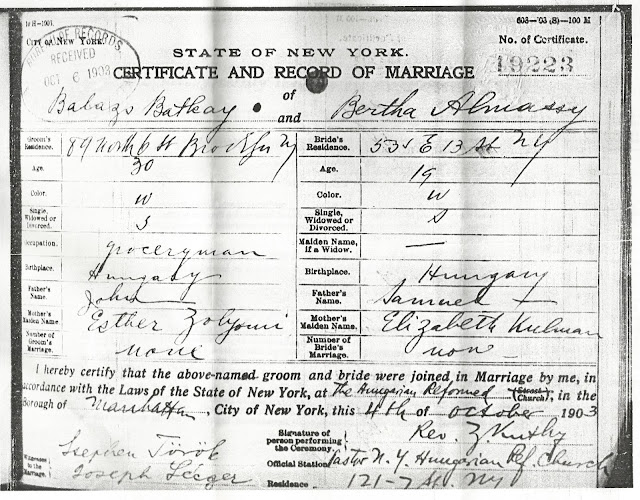 10 H-1903.
608-'03 (B)-100 M
CITY OF NEW YORK.
BUREAU OF RECORDS
RECEIVED
OCT 6 1903
STATE OF NEW YORK.
No. of Certificate.
CERTIFICATE AND RECORD OF MARRIAGE
19223
of
Balazs Batkay and Bertha Almassy
Groom's Residence. 89 North 6 St NY
Bride's Residence. 535 E 13 St NY
Age. 30
Age. 19
Color. W
Color. W
Single, Widowed or Divorced. S
Single, Widowed or Divorced. S
Occupation. groceryman
Maiden Name, if a Widow. —
Birthplace. Hungary
Birthplace. Hungary
Father's Name. John
Father's Name. Samuel
Mother's Maiden Name. Esther Zolyomi
Mother's Maiden Name. Elizabeth Kulman
Number of Groom's Marriage. none
Number of Bride's Marriage. non
I hereby certify that the above-named groom and bride were joined in Marriage by me, in
accordance with the Laws of the State of New York, at The Hungarian Reformed (Street Church), in the
Borough of Manhattan, City of New York, this 4th of October 1903
Signature of person performing the Ceremony. Rev. Z. Kuthy
Witnesses to the Marriage. Stephen Török
Joseph
Official Station Pastor N.Y. Hungarian Ref. Church
Residence 121-7 St. NY